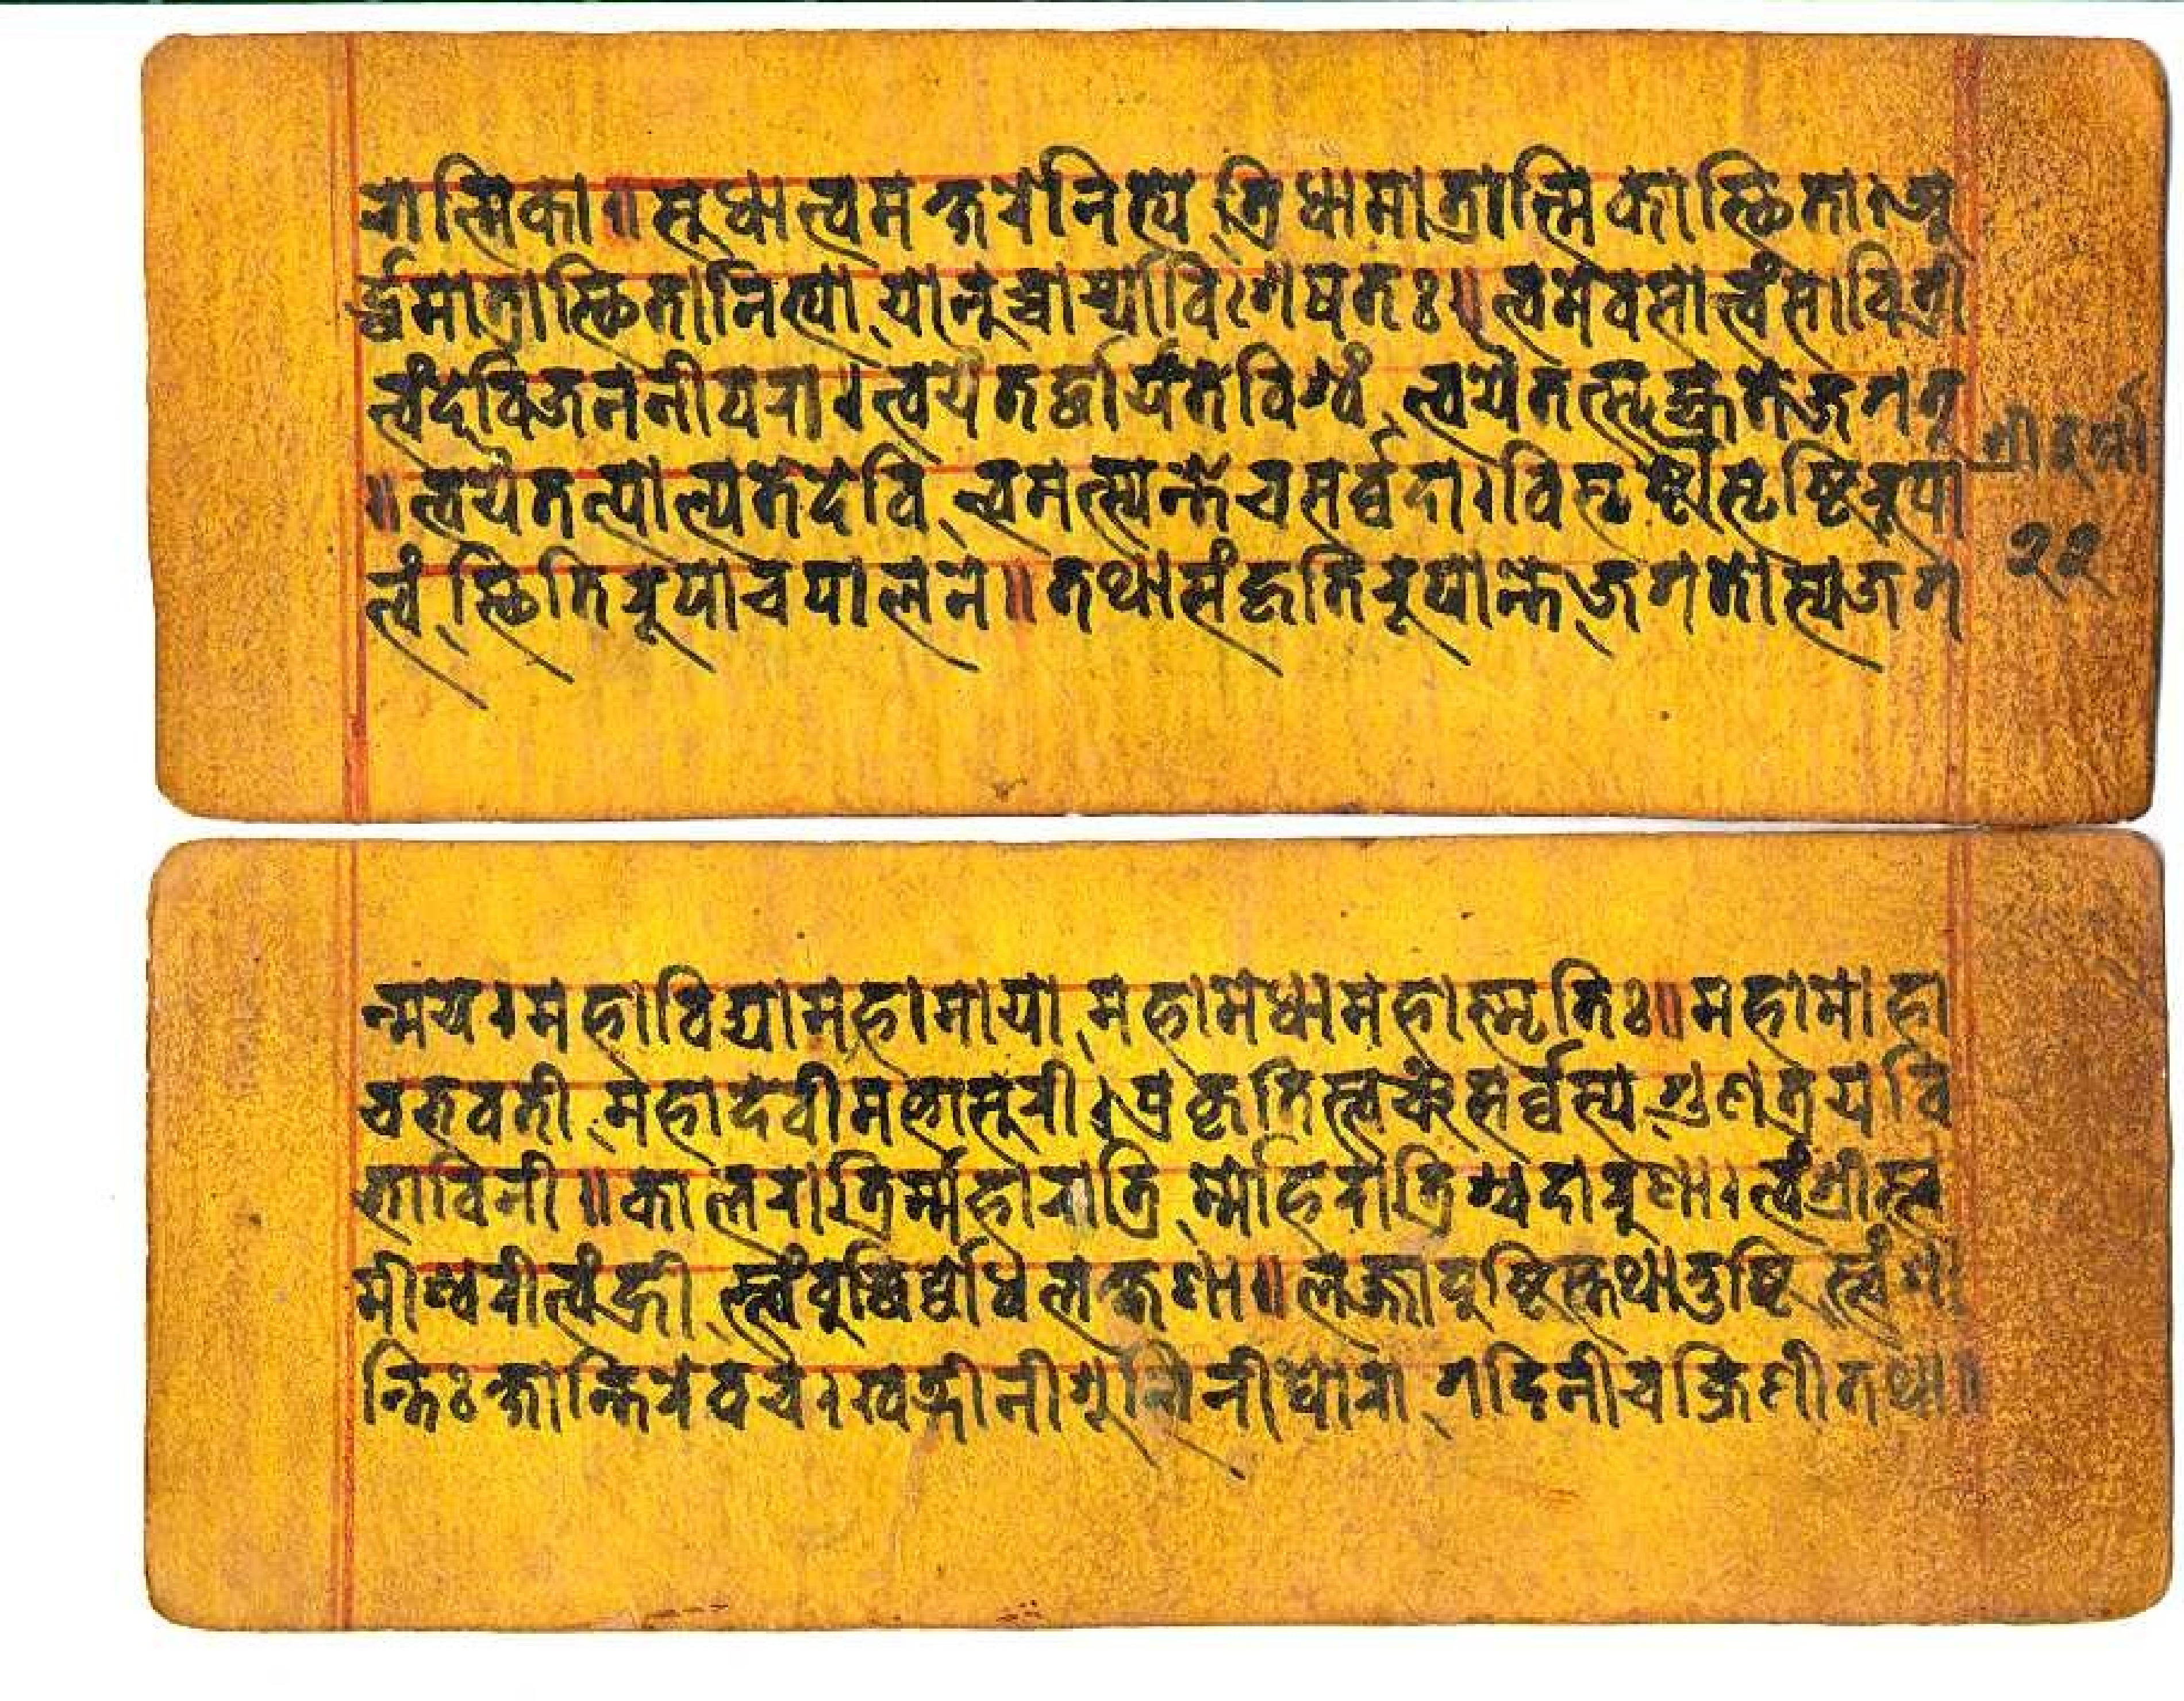 रात्मिका॥सुधात्वमक्षरेनित्य त्रिधामात्रात्मिकास्थिता।अ
र्द्धमात्रास्थितानित्या यानुच्चार्य्याविशेषतः॥त्वमेवसात्वंसावित्री
त्वंदेविजननीपरा।त्वयैतद्धार्यतेविश्वं त्वयैतत्सृज्यतेजगत्
॥त्वयैतत्पाल्यतेदेवि त्वमत्स्यन्तेचसर्व्वदा।विसृष्टौसृष्टिरूपा
त्वं स्थितिरूपाचपालने॥तथासंहृतिरूपान्तेजगतोस्यजग
श्रीदुर्गा
२२
न्मये।महाविद्यामहामाया महामेधामहास्मृतिः॥महामोहा
चभवती महादेवीमहासुरी।प्रकृतिस्त्वञ्चसर्व्वस्य गुणत्रयवि
भाविनी॥कालरात्रिर्म्महारात्रि र्म्मोहरात्रिश्चदारुणा।त्वंश्रीस्त्व
मीश्वरीत्वंह्री स्त्वंबुद्धिर्ब्बोधलक्षणा॥लज्जापुष्टिस्तथातुष्टि स्त्वंशा
न्तिःक्षान्तिरेवच।खड्गीनीशूलिनीघोरा गदिनीचक्रिणीतथा॥